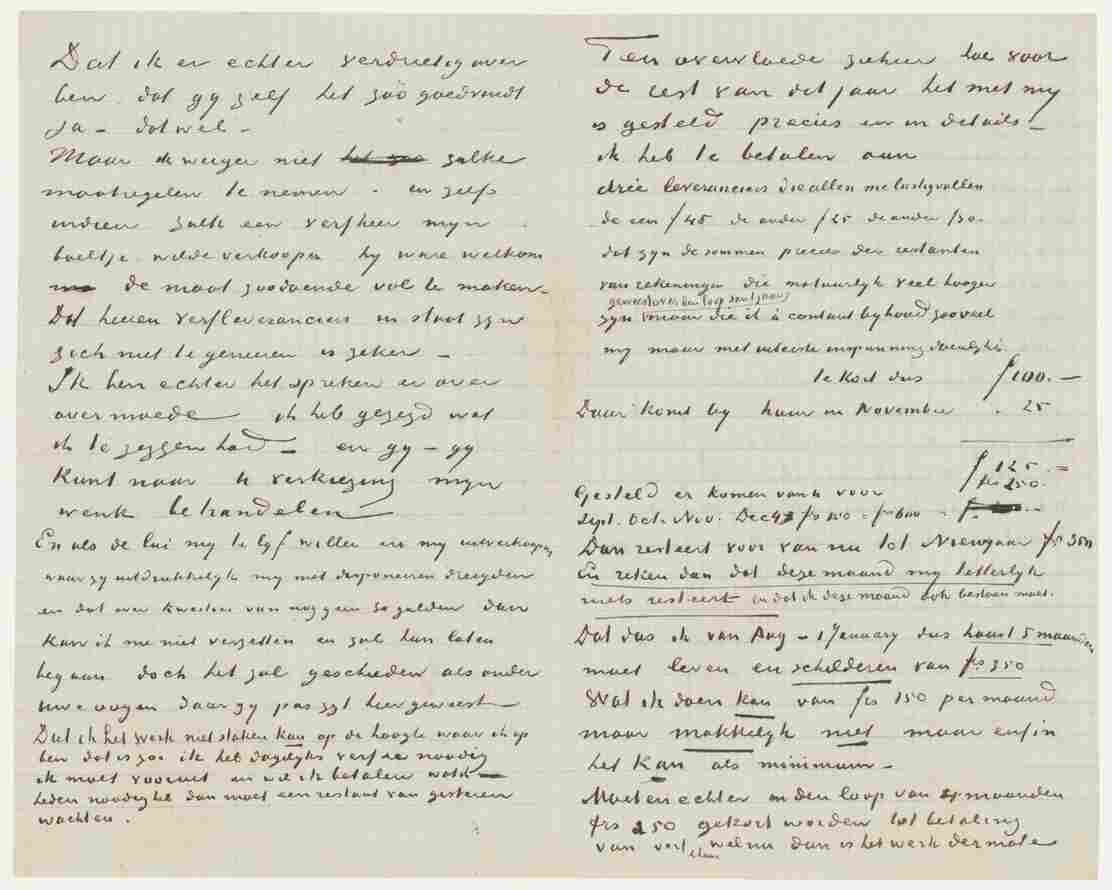 Dat ik er echter verdrietig over
ben dat gy zelf het zóó goedvindt
Ja – dat wel –
Maar ik weiger niet zulke
maatregelen te nemen. en zelfs
indien zulk een verfheer myn
boeltje wilde verkoopen hy ware welkom
de maat zoodoende vol te maken –
Dat heeren verfleveranciers in staat zyn
zich niet te geneeren is zeker –
Ik ben echter het spreken er over
over moede ik heb gezegd wat
ik te zeggen had – en gy – gy
kunt naar uw verkiezing myn
werk behandelen
En als de lui my te lyf willen en my uitverkoopen
waar zy uitdrukkelyk my met deponeeren dreigden
en dat over kwesties van nog geen 30 gulden dan
kan ik me niet verzetten en zal hun laten
begaan doch het zal geschieden als onder
uwe oogen daar gy pas zyt hier geweest –
Dat ik het werk niet staken kan op de hoogte waar ik op
ben dat is zoo ik heb dagelyks verf noodig
ik moet vooruit en wil ik betalen wat
heden noodig heb dan moet een restant van gisteren
wachten.
Ten overvloede ziehier hoe voor
de rest van dit jaar het met my
is gesteld precies en in details –
ik heb te betalen aan
drie leveranciers die allen me lastigvallen
de een f 45 de ander f 25 de ander f 30.
dat zyn de sommen precies der restanten
van rekeningen die natuurlyk veel hooger
geweest over den loop van t jaar
zyn maar die ik à contant byhoud zooveel
my maar met uiterste inspanning doenlyk is.
te kort dus f 100. –
Daar komt by huur in November . 25
f 125. –
frs 250. –
Gesteld er komen van u voor
Sept. Oct. Nov. Dec 4 frs 150 = frs 600
Dan resteert voor van nu tot Nieuwjaar frs 350
En reken dan dat deze maand my letterlyk
niets resteert en dat ik deze maand ook bestaan moet.
Dat dus ik van Aug – 1 January dus haast 5 maanden
moet leven en schilderen van frs 350
Wat ik doen kan van frs 150 per maand
maar makkelyk niet maar enfin
het kan als minimum –
Moeten echter in den loop van maanden
frs 250 gekort worden tot betaling
van verf welnu dan is het werk dermate